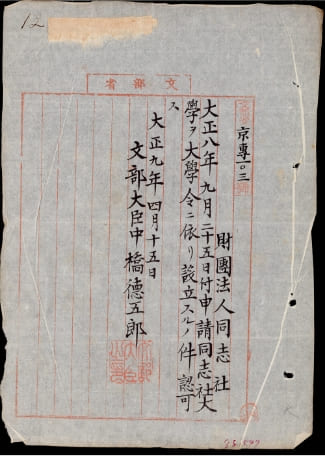 12
省部文
京專一〇三
財團法人同志社
大正八年九月二十五日付申請同志社大
學ヲ大學令ニ依リ設立スルノ件認可
ス
大正九年四月十五日
文部大臣中橋德五郎
文部大臣之印